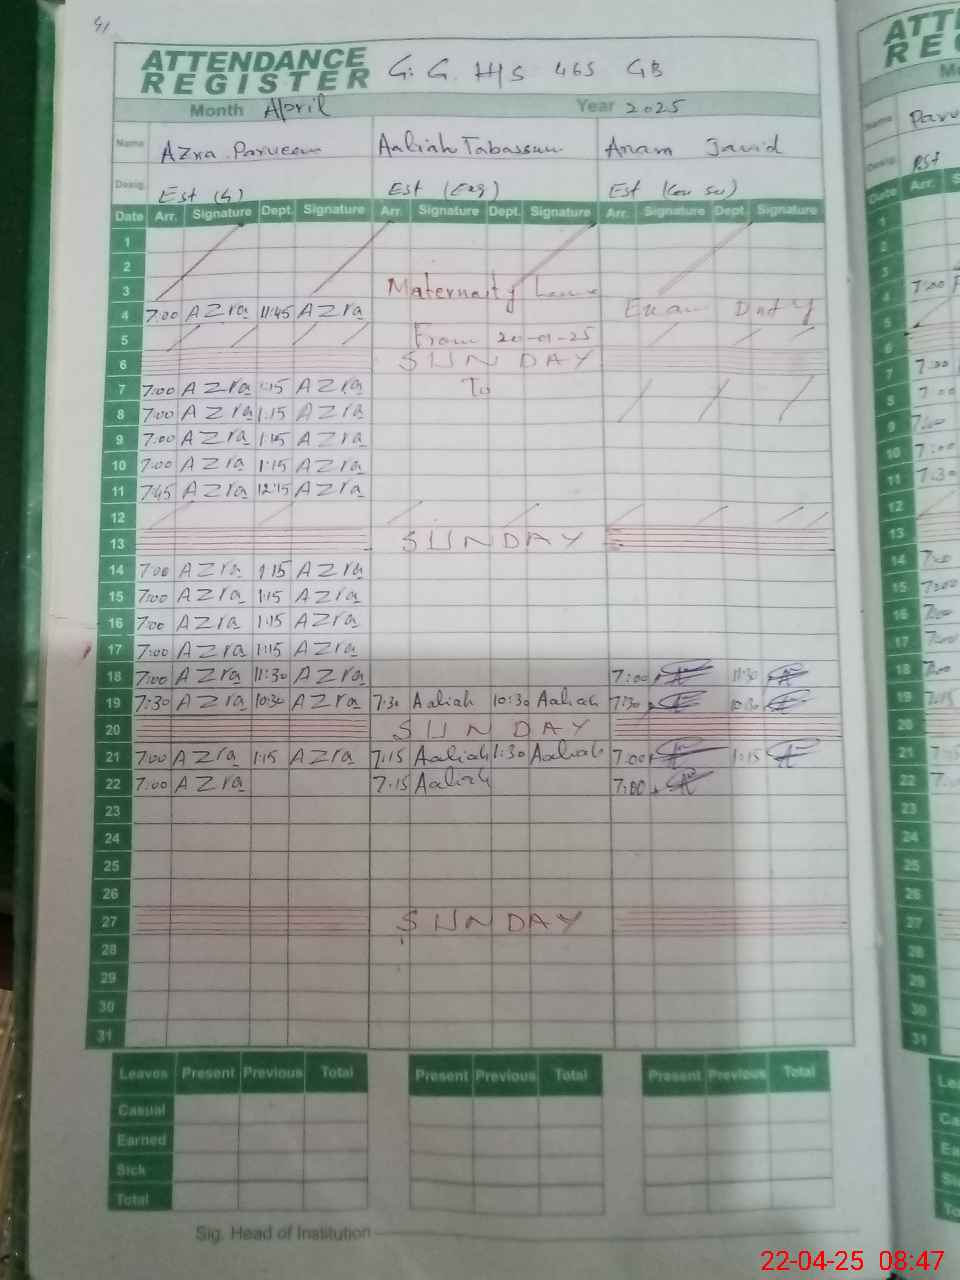 41
ATTENDANCE REGISTER G. G. H/S 465 GB
Month April Year 2025
Name Azra Parveen Aaliah Tabassum Anam Javid
Desig. Est (G) Est (Eng) Est
Date Arr. Signature Dept. Signature Arr. Signature Dept. Signature Arr. Signature Dept. Signature
1
2
3 Maternaity Leave
4 7:00 AZra 11:45 AZra Exam Duty
5 From 20-01-25
6 SUNDAY
7 7:00 AZra 1:15 AZra To
8 7:00 AZra 1:15 AZra
9 7:00 AZra 1:15 AZra
10 7:00 AZra 1:15 AZra
11 7:45 AZra 12:15 AZra
12
13 SUNDAY
14 7:00 AZra 1:15 AZra
15 7:00 AZra 1:15 AZra
16 7:00 AZra 1:15 AZra
17 7:00 AZra 1:15 AZra
18 7:00 AZra 11:30 AZra 7:00 11:30
19 7:30 AZra 10:30 AZra 7:30 Aaliah 10:30 Aaliah 7:30 10:30
20 SUNDAY
21 7:00 AZra 1:15 AZra 7:15 Aaliah 1:30 Aaliah 7:00 1:15
22 7:00 AZra 7:15 Aaliah 7:00
23
24
25
26
27 SUNDAY
28
29
30
31
Leaves Present Previous Total Present Previous Total Present Previous Total
Casual
Earned
Sick
Total
Sig. Head of Institution
22-04-25 08:47